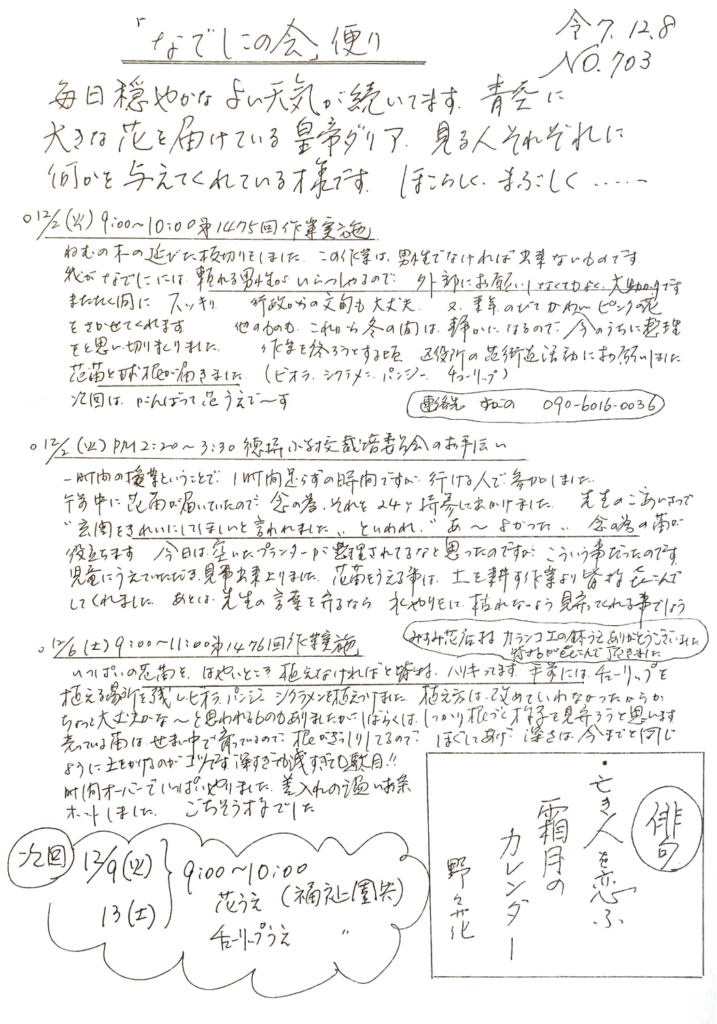 「なでしこの会」便り
令7.12.8
NO.703
毎日穏やかなよい天気が続いてます。青空に
大きな花を届けている皇帝ダリア。見る人それぞれに
何かを与えてくれている様です。ほこらしく、まぶしく……
○12/2(火)9:00～10:00第1475回作業実施
ねむの木の延びた枝切りをしました。この作業は、男性でなければ出来ないものです
我がなでしこには、頼れる男性がいらっしゃるので、外部にお願いしなくてもよく、大助かりです
またたく間に スッキリ 行政からの文句も大丈夫 又、来年のびてかわいいピンクの花
をさかせてくれます 他のものも、これから冬の間は、静かになるので、今のうちに整理
をと思い切りまくりました。 作業を終ろうとする頃 区役所の花街道活動にお願いしました
花苗と球根が届きました。(ビオラ、シクラメン、パンジー、チューリップ)
次回は、がんばって花うえで～す
連絡先 090-6016-0036
○12/2(火)PM2:20～3:30 小学校栽培委員会のお手伝い
一時間の授業ということで、1時間足らずの時間ですが、行ける人で参加しました。
午前中に花苗が届いていたので、念の為、それを24ヶ持参に出かけました。 先生のごあいさつで
"玄関をきれいにしてほしいと言われました"といわれ、"あ～よかった" 念の為の苗が
役立ちます 今日は、空いたプランターが整理されてるなと思ったのですが、こういう事だったのです
児童にうえていただき、見事出来上りました。花苗をうえる事は、土を耕す作業より皆様喜こんで
してくれました。あとは、先生の言葉を守るなら 水やりをして、枯れないよう見守ってくれる事でしょう
カランコエの鉢うえありがとうございました
皆様が喜こんで頂きました
○12/6(土)9:00～11:00第1476回作業実施
いっぱいの花苗を、はやいところ植えなければと皆様、ハリキってます。手前には、チューリップを
植える場所を残しビオラ、パンジー、シクラメンを植えつけました 植え方は、改めていわなかったからか
ちょっと大丈夫かな～と思われるものもありましたが、しばらくは、しっかり根づく様子を見守ろうと思います
売っている苗は、せまい中で育っているので、根がぎっしりしてるので、ほぐしてあげ、深さは、今までと同じ
ように土をかけるのがコツです 深すぎても浅すぎても駄目!!
時間オーバーでいっぱいやりました。差入れの温いお茶
ホットしました。ごちそうさまでした
次回
12/9(火)
13(土)
9:00～10:00
花うえ(福祉園共)
チューリップうえ 〃
俳句
・亡き人を恋ふ
霜月の
カレンダー
野々花